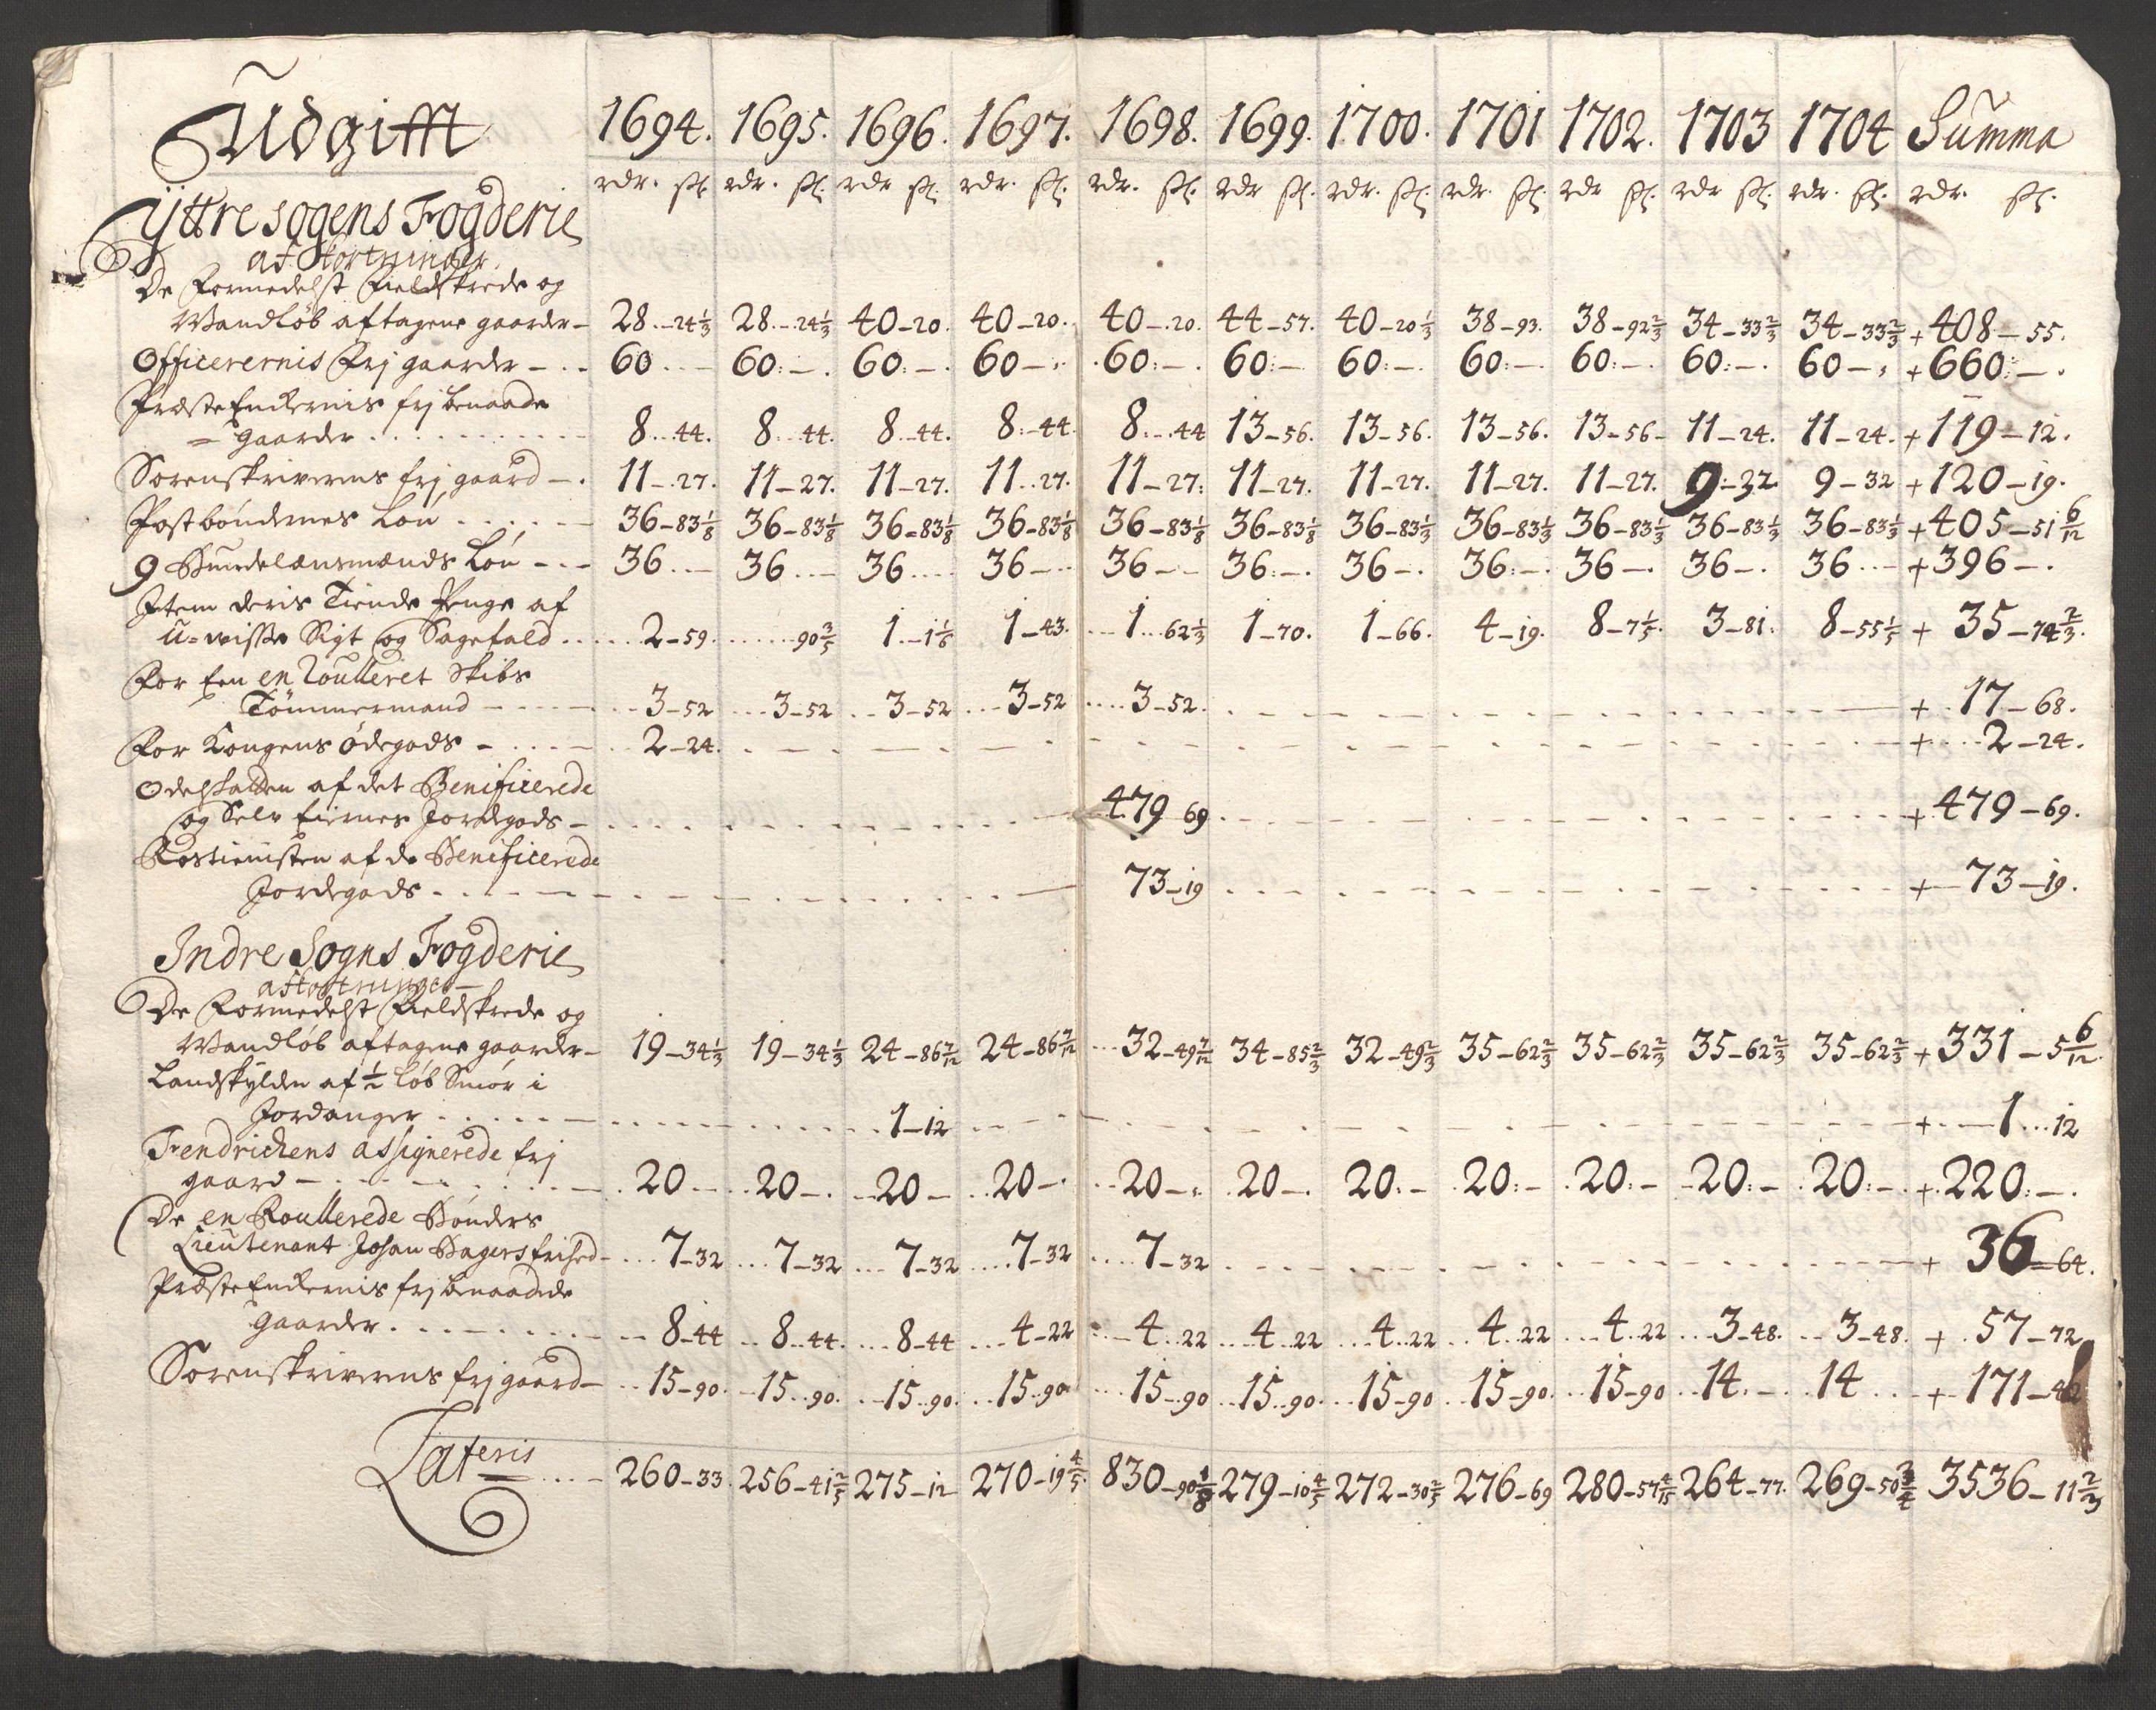 Udgifft 1694. 1695. 1696. 1697. 1698. 1699. 1700. 1701 1702. 1703 1704 Summa
rdr. sk. rdr. sk. rdr sk. rdr. sk. rdr. sk. rdr sk. rdr. sk. rdr. sk. rdr sk. rdr sk. rdr. sk. rdr. sk.
Yttre sogens Fogderie
afkortninger
De formedelst Fieldskrede og
Wandløb aftagene gaarder – 28 – 24 1/3 28 – 24 1/3 40 – 20. 40 – 20. 40 – 20. 44 – 57. 40 – 20 1/3 38 – 93. 38 – 92 2/3 34 – 33 2/3 34 – 33 2/3 + 408 – 55.
Officerernis frj gaarder – 60 – 60: – 60: – 60 – 60: – 60: – 60: – 60: – 60: – 60: – 60 – + 660: –
Præste Enkernis frj benaade
= gaarder 8 – 44. 8 – 44. 8 – 44. 8 – 44. 8 – 44 13 – 56. 13 – 56. 13 – 56. 13 – 56 – 11 – 24. 11 – 24. + 119 – 12.
Sorenskriverens frj gaard – 11 – 27. 11 – 27. 11 – 27. 11 – 27. 11 – 27: 11 – 27. 11 – 27. 11 – 27. 11 – 27. 9 – 32 9 – 32 + 120 – 19.
Postbøndernes Løn 36 – 83 1/8 36 – 83 1/8 36 – 83 1/8 36 – 83 1/8 36 – 83 1/8 36 – 83 1/8 36 – 83 1/3 36 – 83 1/3 36 – 83 1/3 36 – 83 1/3 36 – 83 1/3 + 405 – 51 6/12
9 Bundelænsmænds Løn – 36 – 36 – 36 36 – 36 – 36: – 36 – 36: – 36 – 36 – 36 – + 396 –
Item deris Tiende Penge af
u=wisse Sigt og Sagefald 2 – 59. 90 3/5 1 – 1 1/6 1 – 43. 1 – 62 1/3 1 – 70. 1 – 66. 4 – 19. 8 – 7 1/5. 3 – 81. 8 – 55 1/5 + 35 – 74 2/3.
For Een en Roulleret Skibs
Tömmermand – 3 – 52 3 – 52 3 – 52 3 – 52 3 – 52. + 17 – 68.
For Kongens ødegods – 2 – 24. + 2 – 24.
Odelskatten af det Benificerede
og Selv Eiernes Jordegods – 479 69 + 479 – 69.
Rostienisten af de Benificerede
Jordegods 73 – 19 + 73 – 19.
Indre Sogns Fogderie
afkortninger
De Formedelst Fieldskrede og
Wandløb aftagene gaarder – 19 – 34 1/3 19 – 34 1/3 24 – 86 7/12 24 – 86 7/12 32 – 49 7/12 34 – 85 2/3 32 – 49 2/3 35 – 62 2/3 35 – 62 2/3 35 – 62 2/3 35 – 62 2/3 + 331 – 5 6/12
Landskylden af 1/2 løb Smør i
Jordanger 1 – 12 + 1 – 12
Fendrichens assignerede frj
gaard – 20 – 20 – 20 – 20 – 20 – 20 – 20: – 20: – 20: – 20: – 20: – + 220: –
De en Roullerede Bønders
Lieutenant Johan Hagers frihed – 7 – 32 7 – 32 7 – 32 7 – 32 7 – 32 + 36 – 64.
Præste Enkernis frj benaadede
Gaarder 8 – 44 8 – 44. 8 – 44 4 – 22 4 – 22 4 – 22 4 – 22 4 – 22 4 – 22 3 – 48. 3 – 48. + 57 – 72
Sorenskriverens frj gaard – 15 – 90. 15 – 90. 15 – 90. 15 – 90 15 – 90 15 – 90. 15 – 90 15 – 90. 15 – 90 14. – 14 + 171 – 42
Lateris 260 – 33. 256 – 41 2/5 275 – 12 270 – 19 4/5. 830 – 90 1/8 279 – 10 4/5 272 – 30 2/5 276 – 69 280 – 57 4/15 264 – 77. 269 – 50 3/4 3536 – 11 2/3